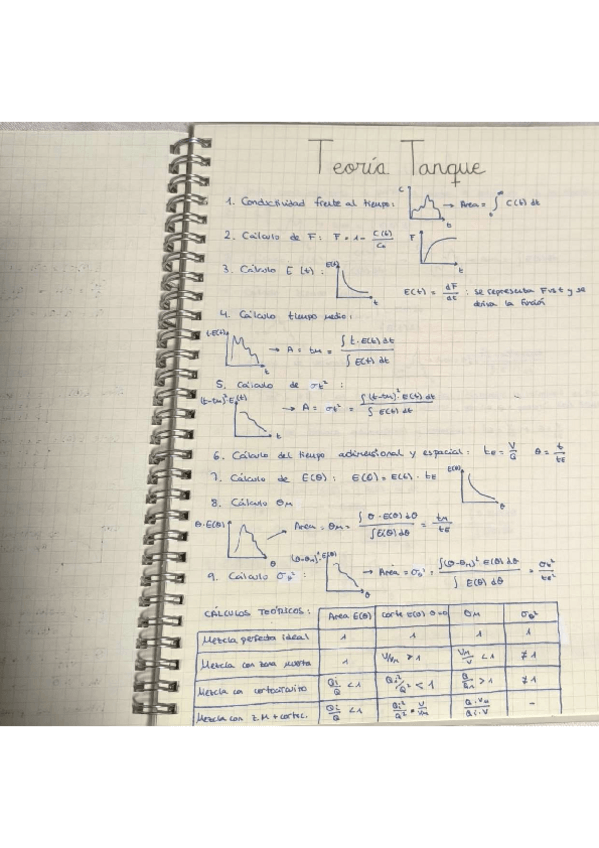 Teoría Tanque
1. Conductividad frente al tiempo: C t → Area = ∫₀^∞ C(t) dt
2. Cálculo de F: F = 1 - C(t)/C₀ F t
3. Cálculo E(t): E(t) t E(t) = dF/dt : se representa F vs t y se
deriva la función
4. Cálculo tiempo medio:
t·E(t) t → A = tM = ∫ t·E(t) dt / ∫ E(t) dt
5. Cálculo de σt² :
(t-tM)²·E(t) t → A = σt² = ∫(t-tM)² E(t) dt / ∫ E(t) dt
6. Cálculo del tiempo adimensional y espacial: tE = V/Q θ = t/tE
7. Cálculo de E(θ): E(θ) = E(t) · tE E(θ) θ
8. Cálculo θM
θ·E(θ) θ → Area = θM = ∫ θ·E(θ) dθ / ∫E(θ) dθ = tM/tE
9. Cálculo σθ² : (θ-θM)²·E(θ) θ → Area = σθ² = ∫(θ-θM)² E(θ) dθ / ∫ E(θ) dθ = σt²/tE²
CÁLCULOS TEÓRICOS: Area E(θ) corte E(θ) θ=0 θM σθ²
Mezcla perfecta ideal 1 1 1 1
Mezcla con zona muerta 1 V/VM > 1 VM/V < 1 ≠ 1
Mezcla con cortocircuito Qi/Q < 1 Qi²/Q² < 1 > 1 ≠ 1
Mezcla con Z.M + cortoc. Qi/Q < 1 Qi²/Q² · V/VM -